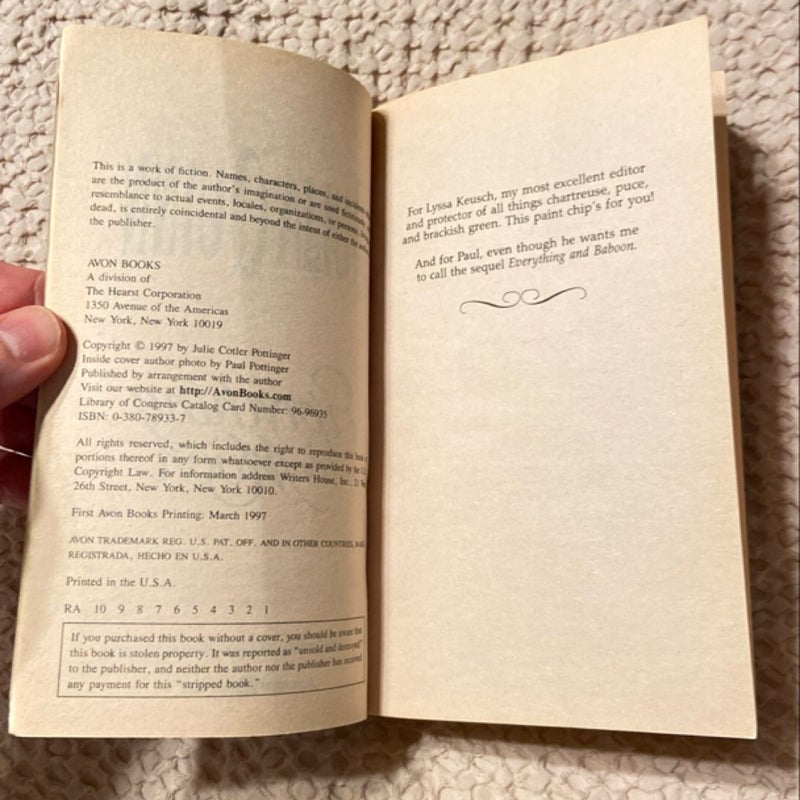 This is a work of fiction. Names, characters, places, and incidents
are the product of the author's imagination or are used fictitiously
resemblance to actual events, locales, organizations, or persons,
dead, is entirely coincidental and beyond the intent of either the
the publisher.
AVON BOOKS
A division of
The Hearst Corporation
1350 Avenue of the Americas
New York, New York 10019
Copyright © 1997 by Julie Cotler Pottinger
Inside cover author photo by Paul Pottinger
Published by arrangement with the author
Visit our website at http://AvonBooks.com
Library of Congress Catalog Card Number: 96-96935
ISBN: 0-380-78933-7
All rights reserved, which includes the right to reproduce this book
portions thereof in any form whatsoever except as provided by the
Copyright Law. For information address Writers House, Inc., 21
26th Street, New York, New York 10010.
First Avon Books Printing: March 1997
AVON TRADEMARK REG. U.S. PAT. OFF. AND IN OTHER COUNTRIES,
REGISTRADA, HECHO EN U.S.A.
Printed in the U.S.A.
RA 10 9 8 7 6 5 4 3 2 1
If you purchased this book without a cover, you should be aware that
this book is stolen property. It was reported as "unsold and destroyed"
to the publisher, and neither the author nor the publisher has received
any payment for this "stripped book."
For Lyssa Keusch, my most excellent editor
and protector of all things chartreuse, puce,
and brackish green. This paint chip's for you!
And for Paul, even though he wants me
to call the sequel Everything and Baboon.